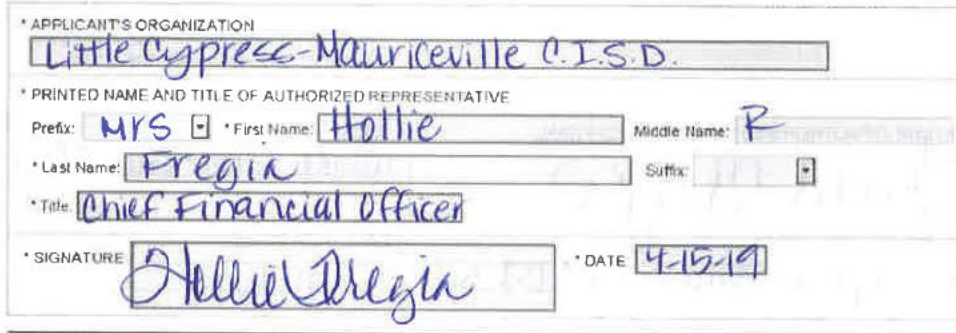 * APPLICANT'S ORGANIZATION
Little Cypress-Mauriceville C.I.S.D.
* PRINTED NAME AND TITLE OF AUTHORIZED REPRESENTATIVE
Prefix: Mrs * First Name: Hollie Middle Name: R
* Last Name: Fregia Suffix:
* Title: Chief Financial Officer
* SIGNATURE Hollie Fregia * DATE 4-15-19